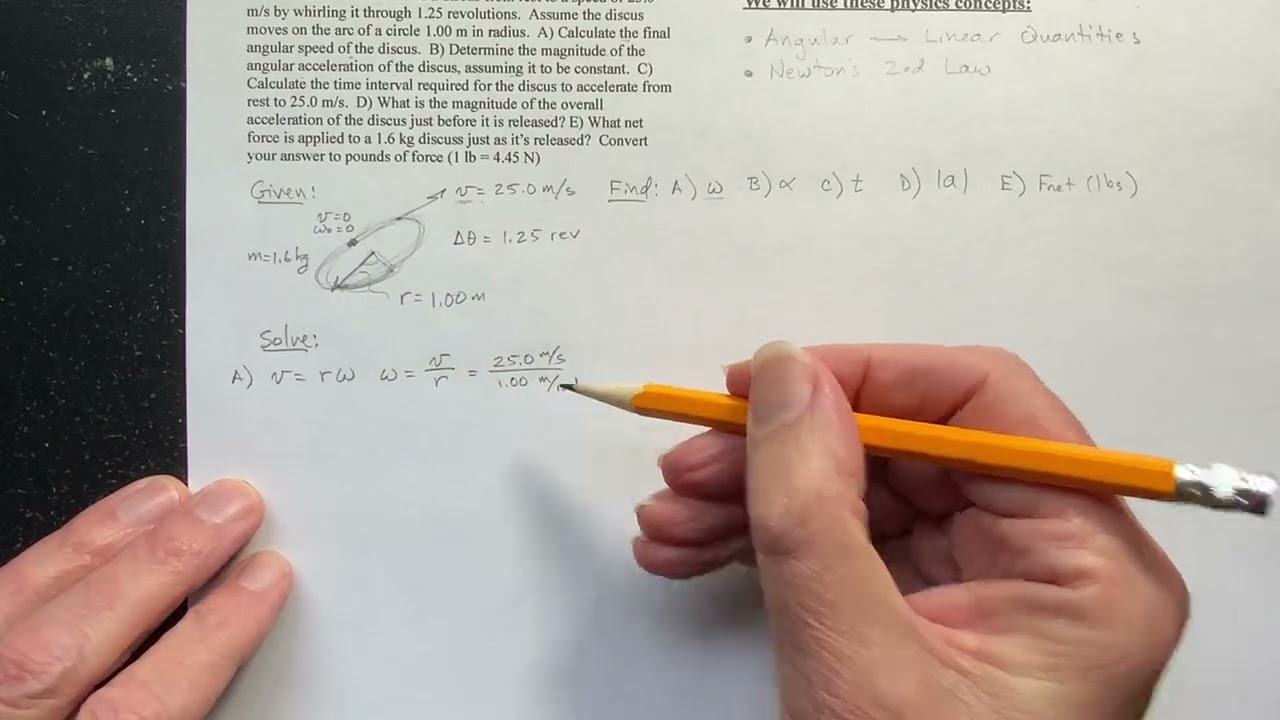 m/s by whirling it through 1.25 revolutions. Assume the discus
moves on the arc of a circle 1.00 m in radius. A) Calculate the final
angular speed of the discus. B) Determine the magnitude of the
angular acceleration of the discus, assuming it to be constant. C)
Calculate the time interval required for the discus to accelerate from
rest to 25.0 m/s. D) What is the magnitude of the overall
acceleration of the discus just before it is released? E) What net
force is applied to a 1.6 kg discuss just as it's released? Convert
your answer to pounds of force (1 lb = 4.45 N)
We will use these physics concepts:
• Angular → Linear Quantities
• Newton's 2nd Law
Given:
v = 25.0 m/s
Find: A) ω B) α C) t D) |a| E) Fnet (lbs)
v=0
ω₀=0
Δθ = 1.25 rev
m=1.6 kg
r = 1.00 m
Solve:
A) v = rω ω = v/r = 25.0 m/s / 1.00 m/